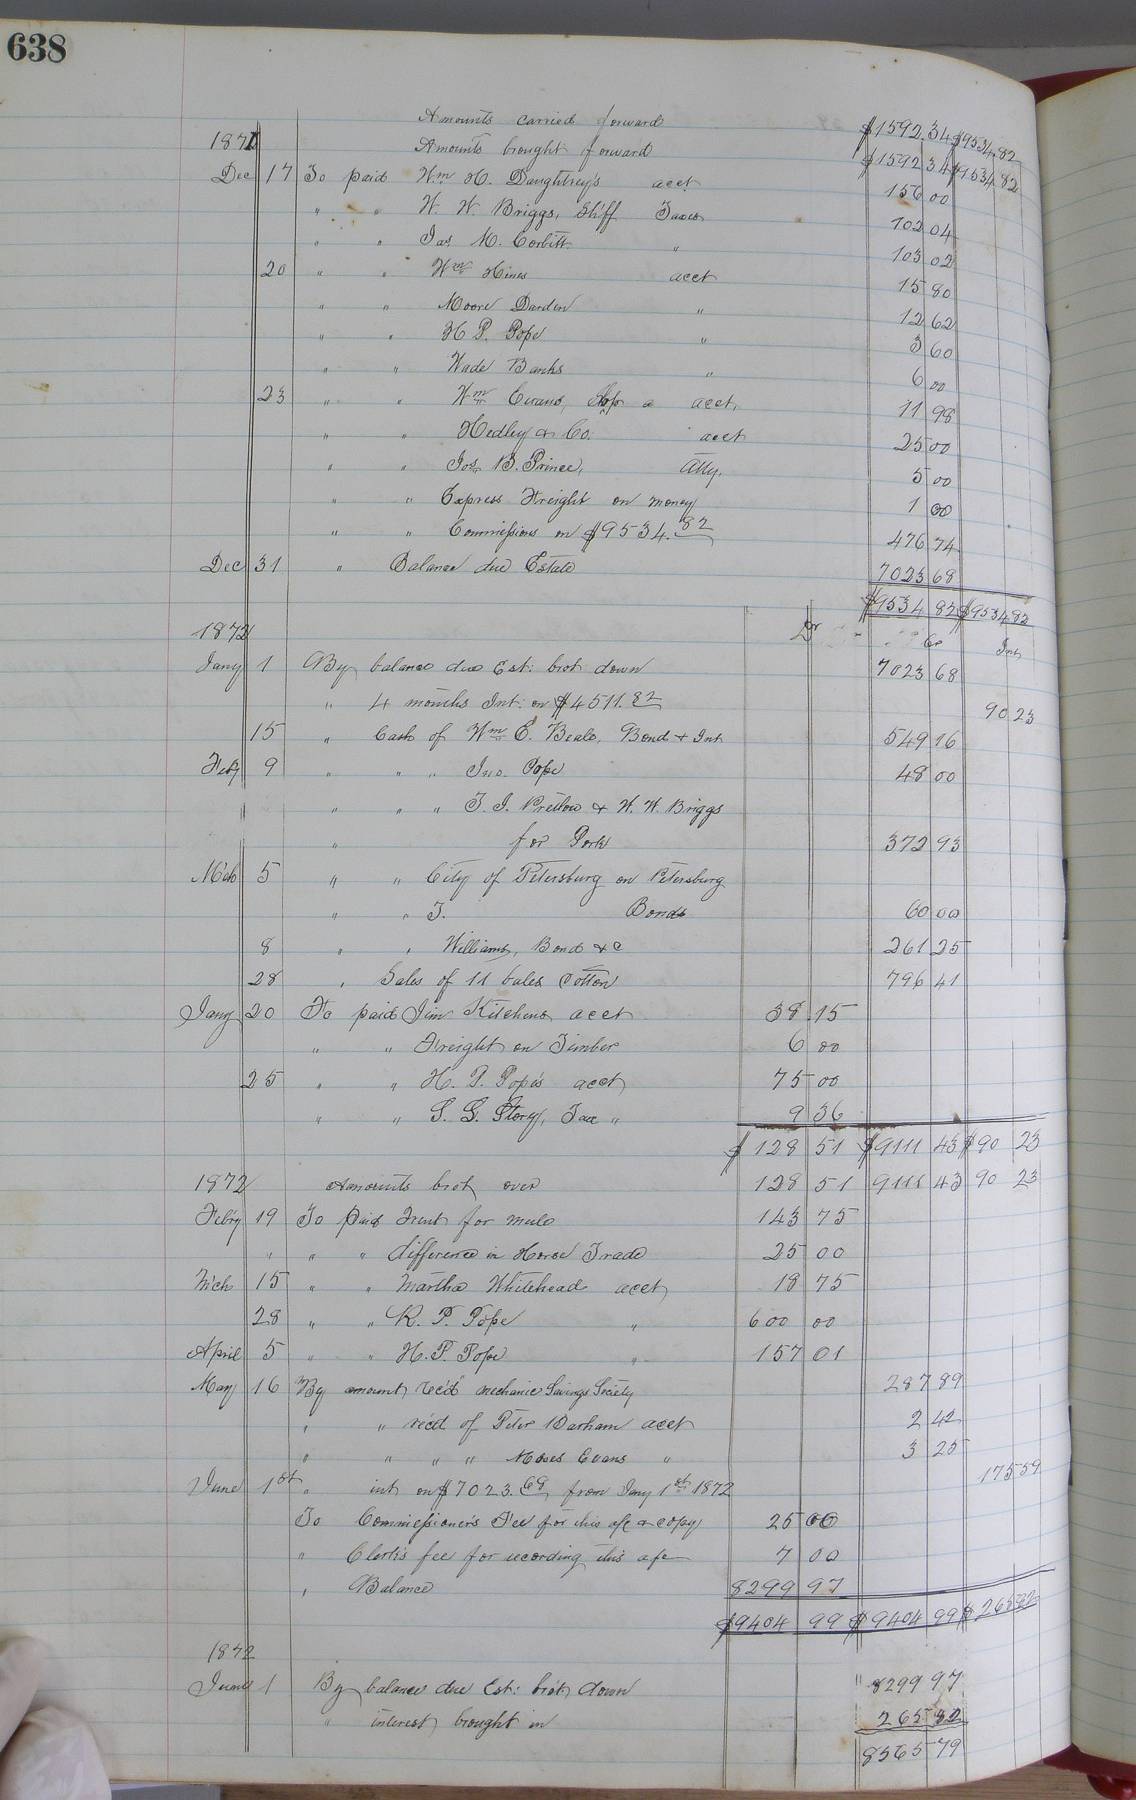 638
Amounts carried forward $1592.34 $9534.82
1871
Amounts brought forward $1592 34 $9534 82
Dec 17 To paid Wm H. Daughtrey's acct 156 00
" " W. W. Briggs, Shff. Taxes 102 04
" " Jas. M. Corbitt " 103 02
20 " " Wm Hines acct 15 80
" " Moore Darden " 12 62
" " H P. Pope " 3 60
" " Wade Banks " 6 00
23 " " Wm Evans, a acct, 11 98
" " Hedley & Co. acct 25 00
" " Jos. B. Prince, Atty. 5 00
" " Express Freight on money 1 00
" " Commissions on $9534.82 476 74
Dec 31 " Balance due Estate 7023 68
$9534 82 $9534 82
1872 Dr Cr Int
Jany 1 By balance due Est: brot down 7023 68
" 4 months Int: on $4511.82 90 23
15 " Cash of Wm E. Beale, Bond & Int 549 16
Feby 9 " " " Jno. Pope 48 00
" " " T. J. Pretlow & W. W. Briggs
" for Pork 372 93
Mch 5 " " City of Petersburg on Petersburg
" " T. Bonds 60 00
8 " " Williams, Bond &c 261 25
28 " Sales of 11 bales Cotton 796 41
Jany 20 To paid Jim Kitchens acct 38.15
" " Freight on Timber 6 00
25 " " H. P. Pope's acct 75 00
" " S. G. Story, Tax " 9 36
$128 51 $9111 43 $90 23
1872 Amounts brot over 128 51 9111 43 90 23
Feb'y 19 To paid Trent for mule 143 75
" " " difference in Horse Trade 25 00
Mch 15 " " Martha Whitehead acct 18 75
28 " " R. P. Pope " 600 00
April 5 " " H. P. Pope " 157 01
May 16 By amount rec'd mechanic Savings Society 287 89
" " rec'd of Peter Darham acct 2 42
" " " " Moses Evans " 3 25
June 1st " int on $7023.68 from Jany 1st 1872 175 59
To Commissioner's Fee for this a/c & copy 25 00
" Clerk's fee for recording this a/c 7 00
" Balance 8299 97
$9404 99 $9404 99 $265 82
1872
June 1 By balance due Est: brot down 8299 97
" interest brought in 265 82
8565 79